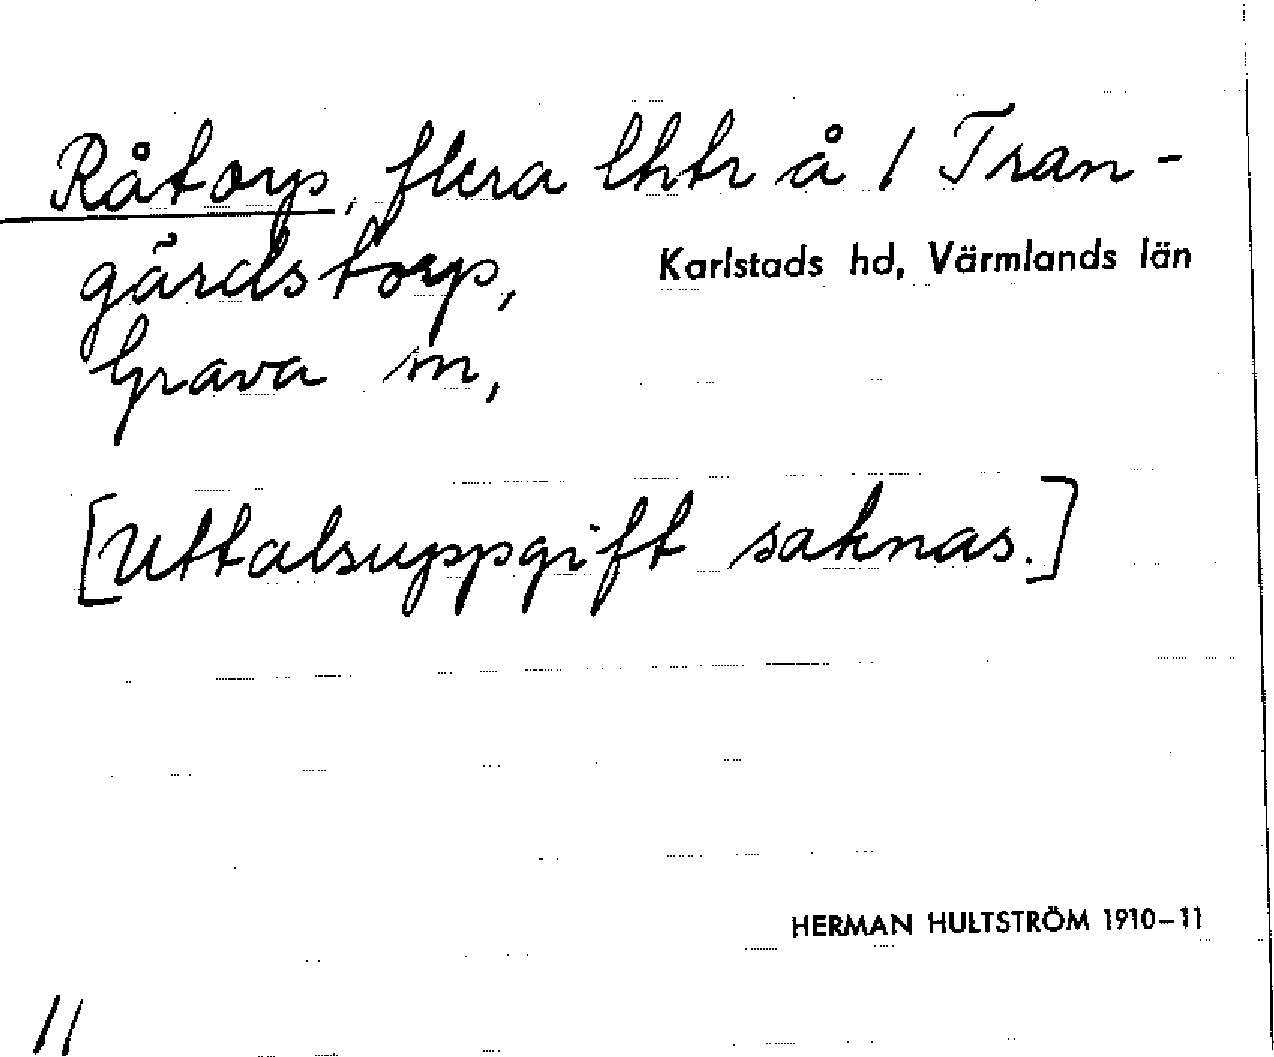 Råtorp, flera lhtr å 1 Tran-
gärdstorp,
Karlstads hd, Värmlands län
Grava sn,
[Uttalsuppgift saknas.]
HERMAN HULTSTRÖM 1910-11
11